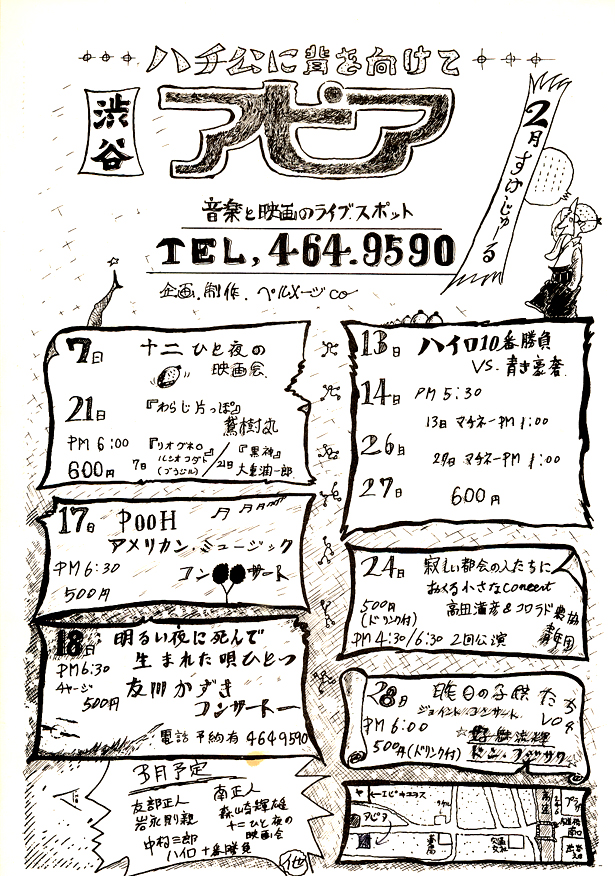 ハチ公に背を向けて
渋谷
アピア
2月すけじゅーる
音楽と映画のライブスポット
TEL, 464.9590
企画.制作.ペルメージCO
7日 十二ひと夜の
映画会
21日 『わらじ片っぽ』
PM 6:00
600円
7日
(ブラジル)
21日
『黒神』
17日 POOH
アメリカン・ミュージック
コンサート
PM 6:30
500円
18日 明るい夜に死んで
生まれた唄ひとつ
PM 6:30
チャージ
500円
友川かずき
コンサートー
電話予約有 4649590
3月予定
友部正人
南正人
中村三郎
十二ひと夜の
映画会
ハイロ十番勝負
他
13日 ハイロ10番勝負
VS. 青き豪奢
14日 PM 5:30
13日 マチネーPM 1:00
26日
27日 マチネーPM 1:00
27日 600円
24日 寂しい都会の人たちに
おくる小さなconcert
500円
(ドリンク付)
PM 4:30/6:30 2回公演
28日 昨日の子供たち
ジョイントコンサート
PM 6:00
500円(ドリンク付)
アピア